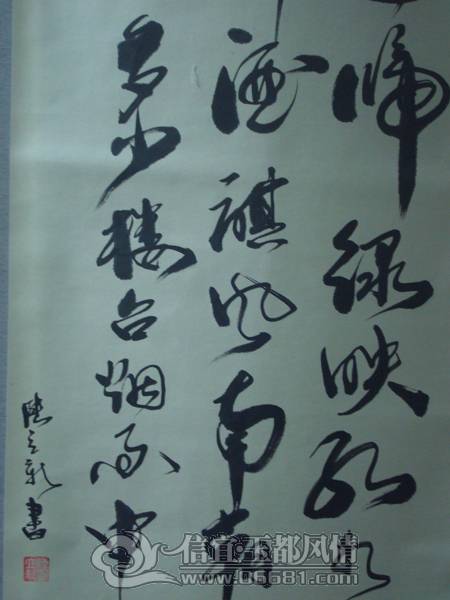 啼绿映红水
酒旗风南朝
多少楼台烟雨中
书
信宜玉都风情
www.06681.com